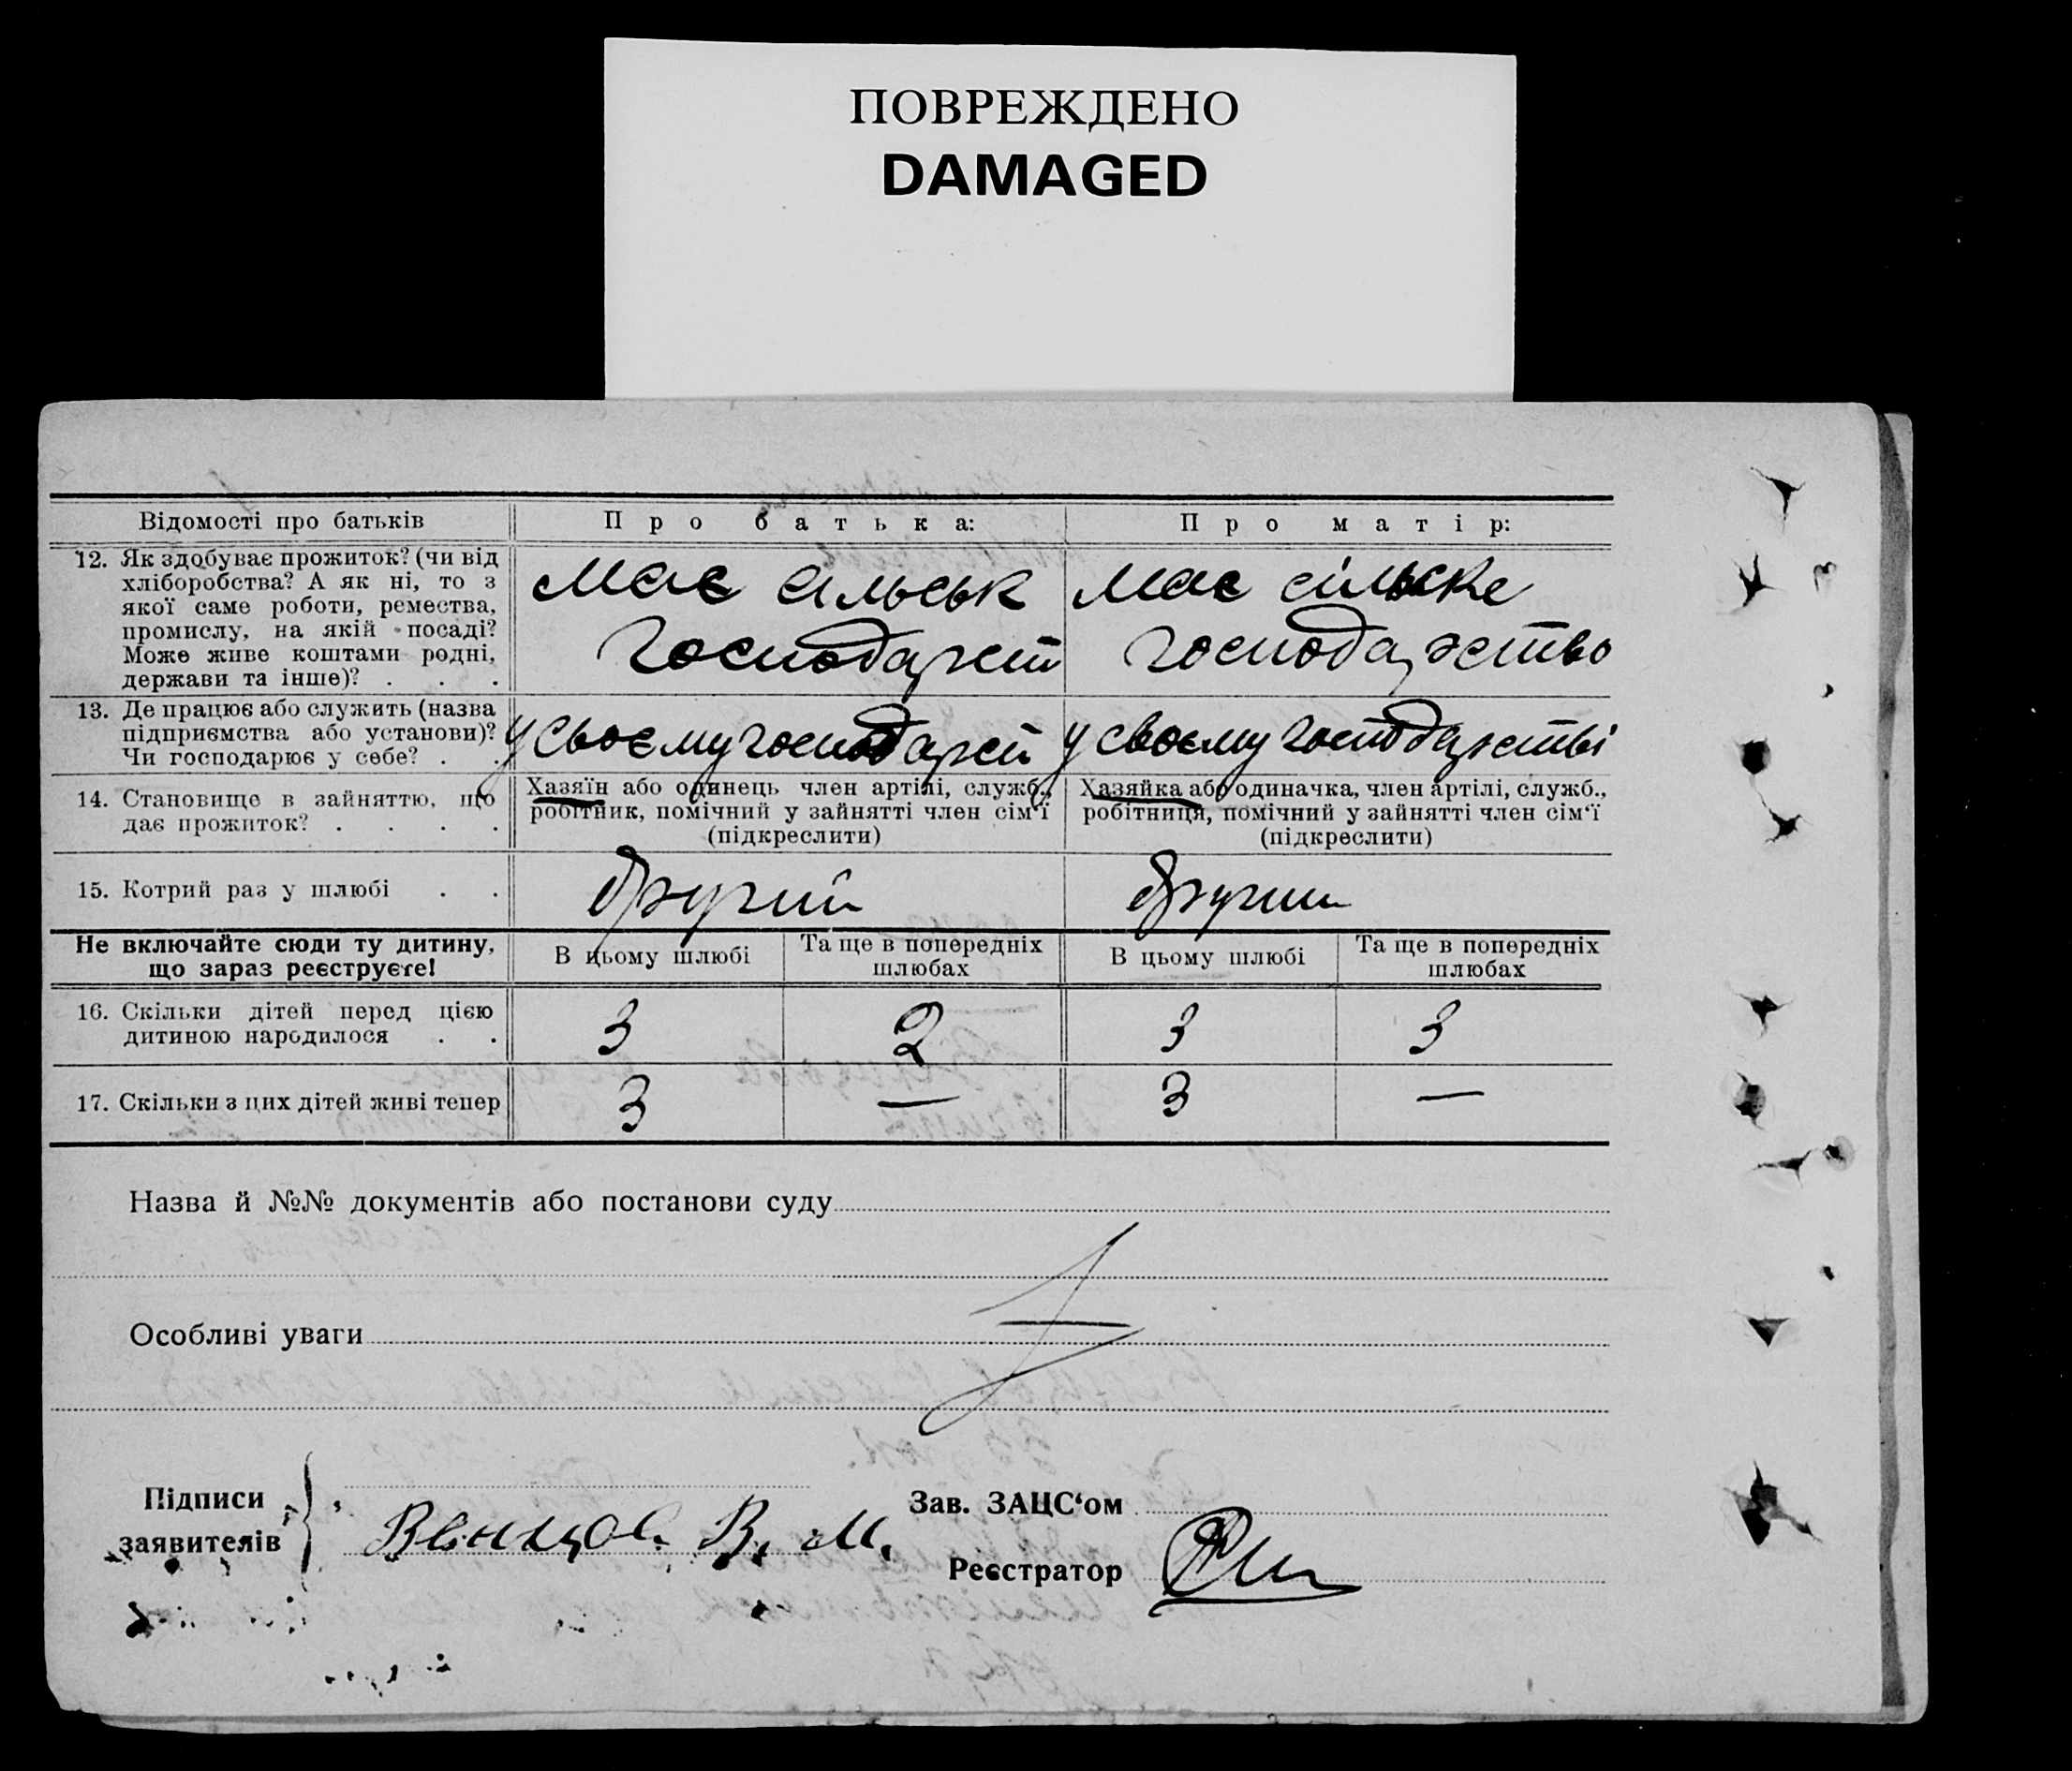 ПОВРЕЖДЕНО
DAMAGED
Відомості про батьків
Про батька:
Про матір:
12. Як здобуває прожиток? (чи від
хліборобства? А як ні, то з
якої саме роботи, ремества,
промислу, на якій посаді?
Може живе коштами родні,
держави та інше)? . . .
має сільськ
господарст
має сільске
господарство
13. Де працює або служить (назва
підприємства або установи)?
Чи господарює у себе? . .
у своєму господарст
у своєму господарстві
14. Становище в зайняттю, що
дає прожиток? . . . .
Хазяїн або одинець член артілі, служб.,
робітник, помічний у зайнятті член сім'ї
(підкреслити)
Хазяйка або одиначка, член артілі, служб.,
робітниця, помічний у зайнятті член сім'ї
(підкреслити)
15. Котрий раз у шлюбі . .
другий
другий
Не включайте сюди ту дитину,
що зараз реєструєте!
В цьому шлюбі
Та ще в попередніх
шлюбах
В цьому шлюбі
Та ще в попередніх
шлюбах
16. Скільки дітей перед цією
дитиною народилося . .
3
2
3
3
17. Скільки з цих дітей живі тепер
3
—
3
—
Назва й №№ документів або постанови суду
Особливі уваги
Підписи
заявителів
В. М.
Зав. ЗАЦС'ом
Реєстратор